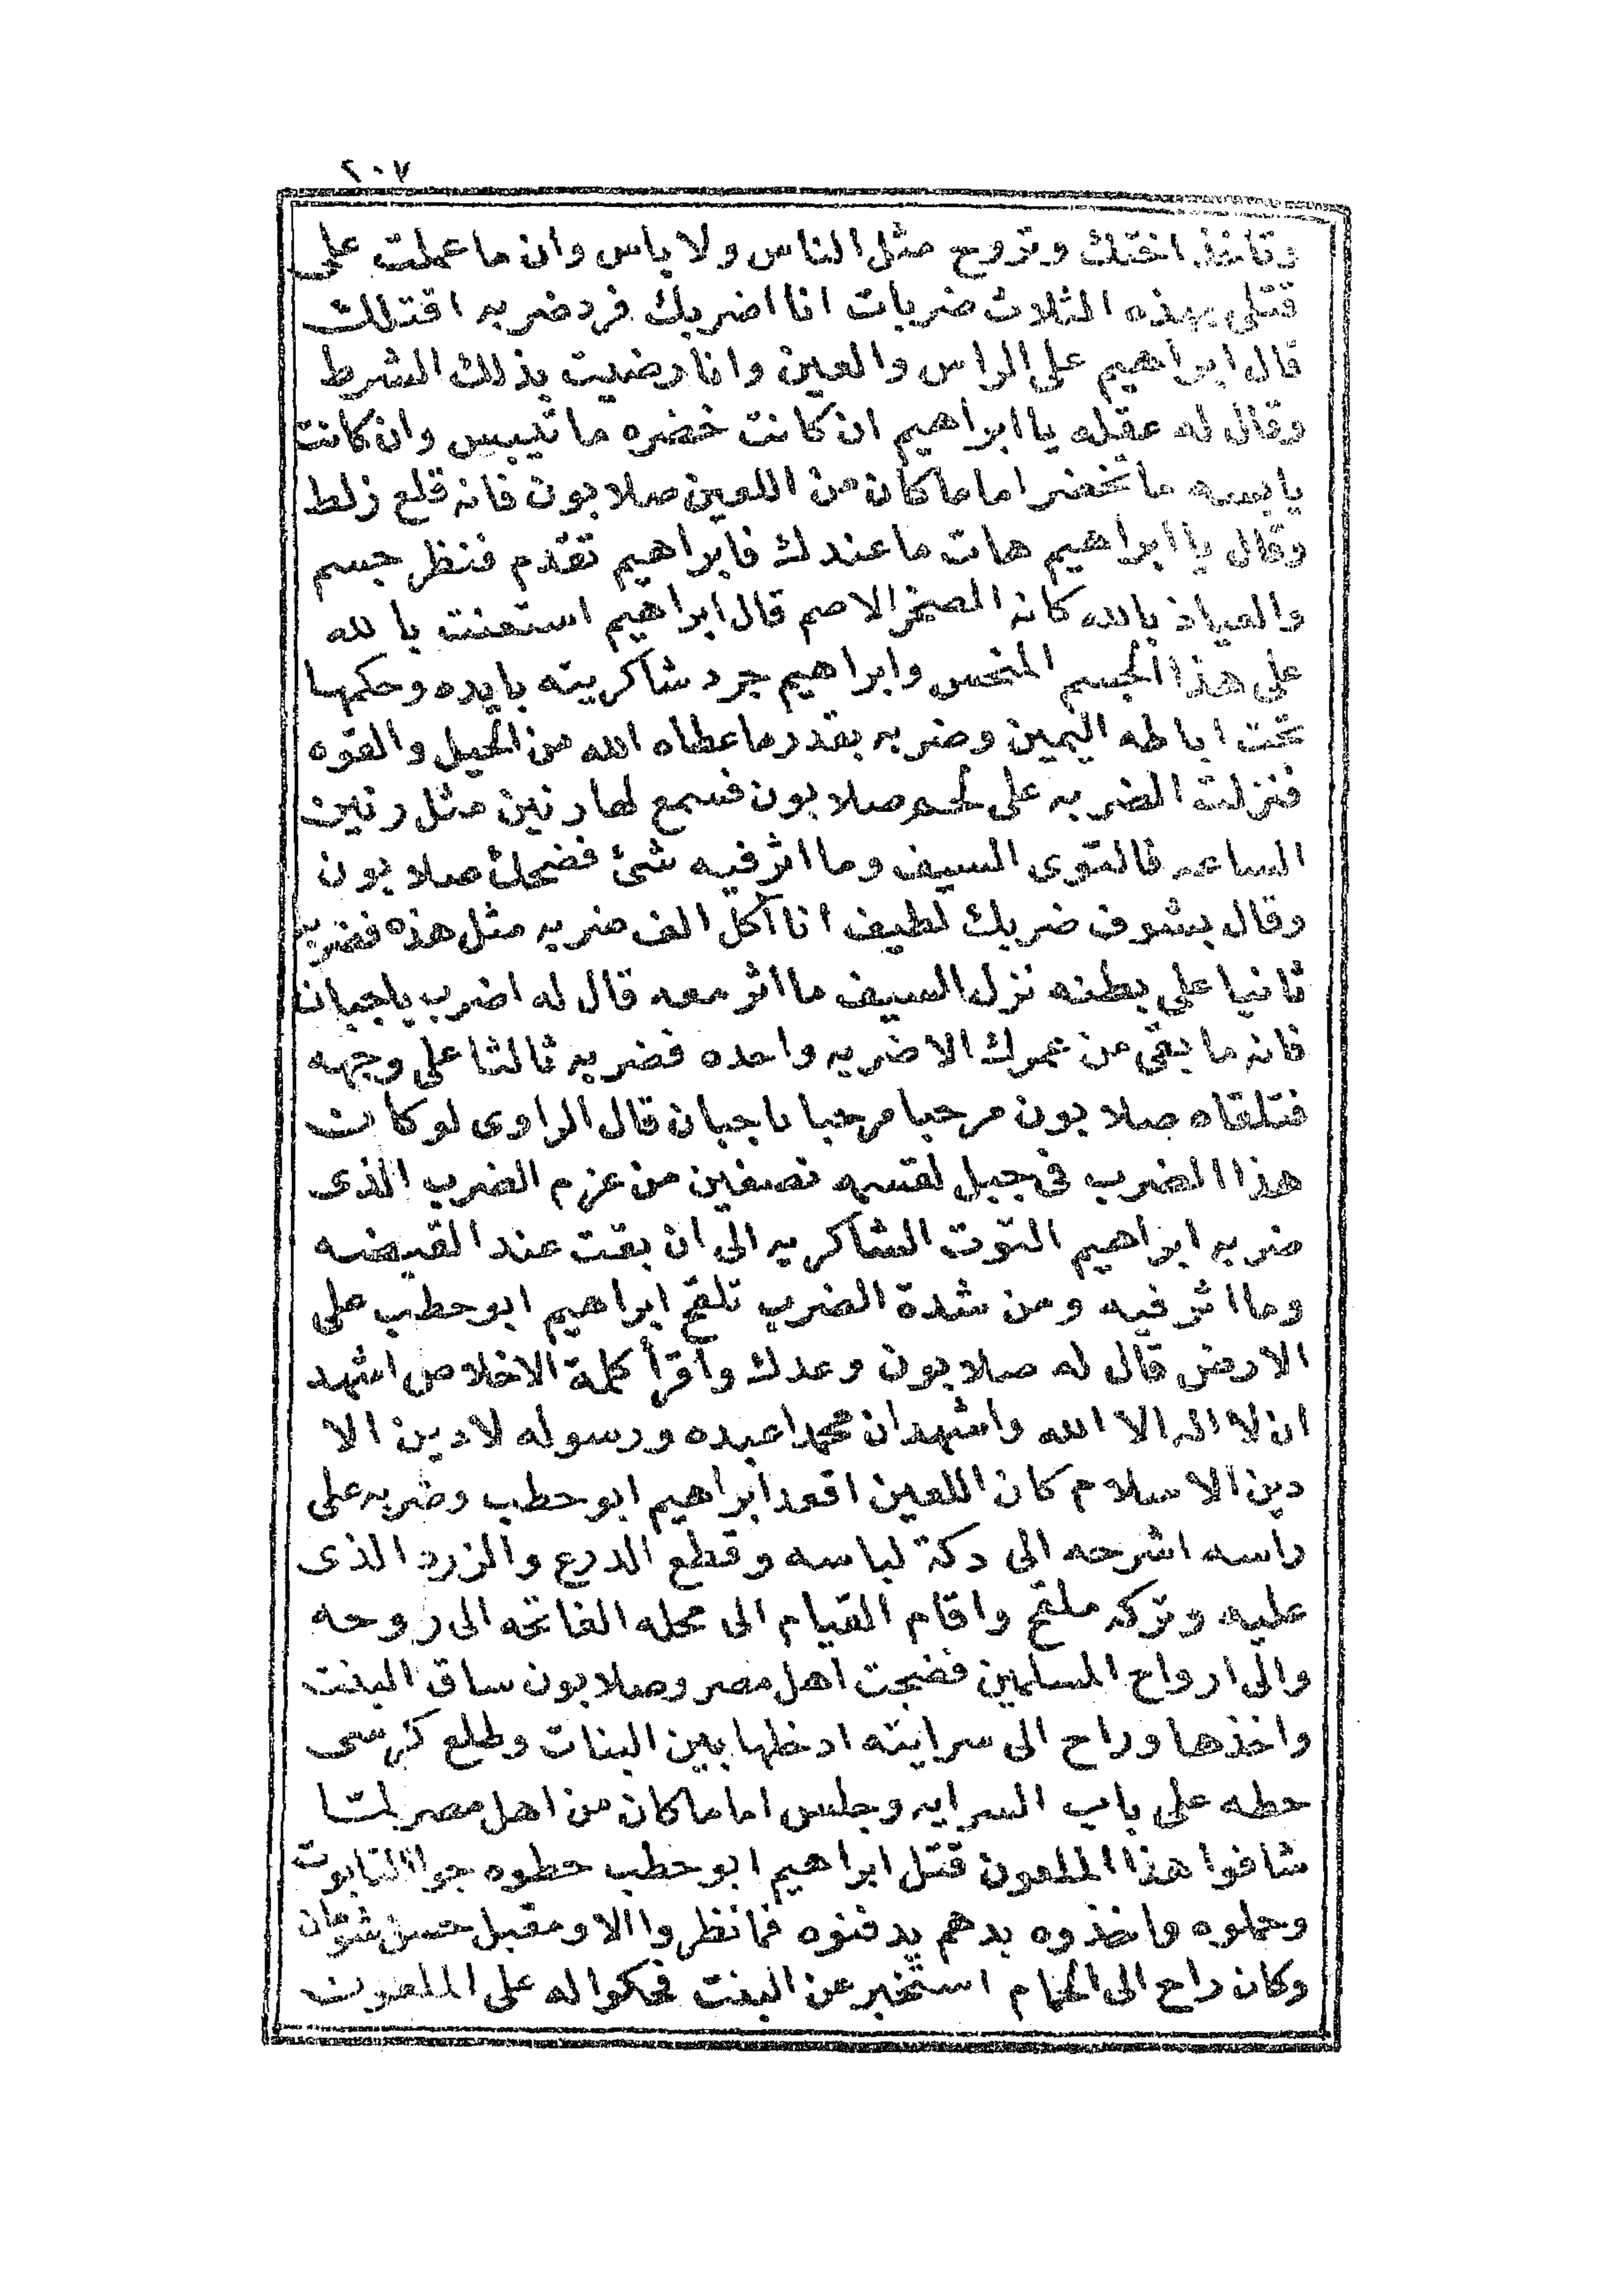 ٢٠٧
وتاخذ اختك وتروح مثل الناس ولا باس وان ما عملت على
قتلى بهذه الثلاث ضربات انا اضربك فرد ضربه اقتلك
قال ابراهيم على الراس والعين وانا رضيت بذلك الشرط
وقال له عقله يا ابراهيم ان كانت خضره ما تيبس وان كانت
يابسه ما تخضر اما ما كان من اللعين صلابون فانه قلع زلط
وقال يا ابراهيم هات ما عندك فابراهيم تقدم فنظر جسم
والعياذ بالله كانه الصخر الاصم قال ابراهيم استعنت بالله
على هذا الجسم النحس وابراهيم جرد شاكريته بايده وحكمها
تحت اباطه اليمين وضربه بقدر ما عطاه الله من الحيل والقوه
فنزلت الضربه على لحم صلابون فسمع لها رنين مثل رنين
الساعه فالتوى السيف وما اثر فيه شئ فضحك صلابون
وقال بشوف ضربك لطيف انا آكل الف ضربه مثل هذه فضربه
ثانيا على بطنه نزل السيف ما اثر معه قال له اضرب يا جبان
فانه ما بقى من عمرك الا ضربه واحده فضربه ثالثا على وجهه
فتلقاه صلابون مرحبا مرحبا يا جبان قال الراوى لو كانت
هذا الضرب فى جبل لقسمه نصفين من عزم الضرب الذى
ضربه ابراهيم التوت الشاكريه الى ان بقت عند القبضه
وما اثر فيه ومن شدة الضرب تلقح ابراهيم ابو حطب على
الارض قال له صلابون وعدك واقرأ كلمة الاخلاص اشهد
ان لا اله الا الله واشهد ان محمدا عبده ورسوله لا دين الا
دين الاسلام كان اللعين اقعد ابراهيم ابو حطب وضربه على
راسه اشرحه الى دكة لباسه وقطع الدرع والزرد الذى
عليه وتركه ملقح واقام القيام الى محله الفاتحه الى روحه
والى ارواح المسلمين فضجت اهل مصر وصلابون ساق البنت
واخذها وراح الى سرايته ادخلها بين البنات وطلع كرسى
حطه على باب السرايه وجلس اما ما كان من اهل مصر لمتا
شافوا هذا الملعون قتل ابراهيم ابو حطب حطوه جوا التابوت
وحملوه واخذوه بدهم يدفنوه فما نظروا الا ومقبل حسن شومان
وكان راح الى الحمام استخبر عن البنت فحكوا له على الملعون